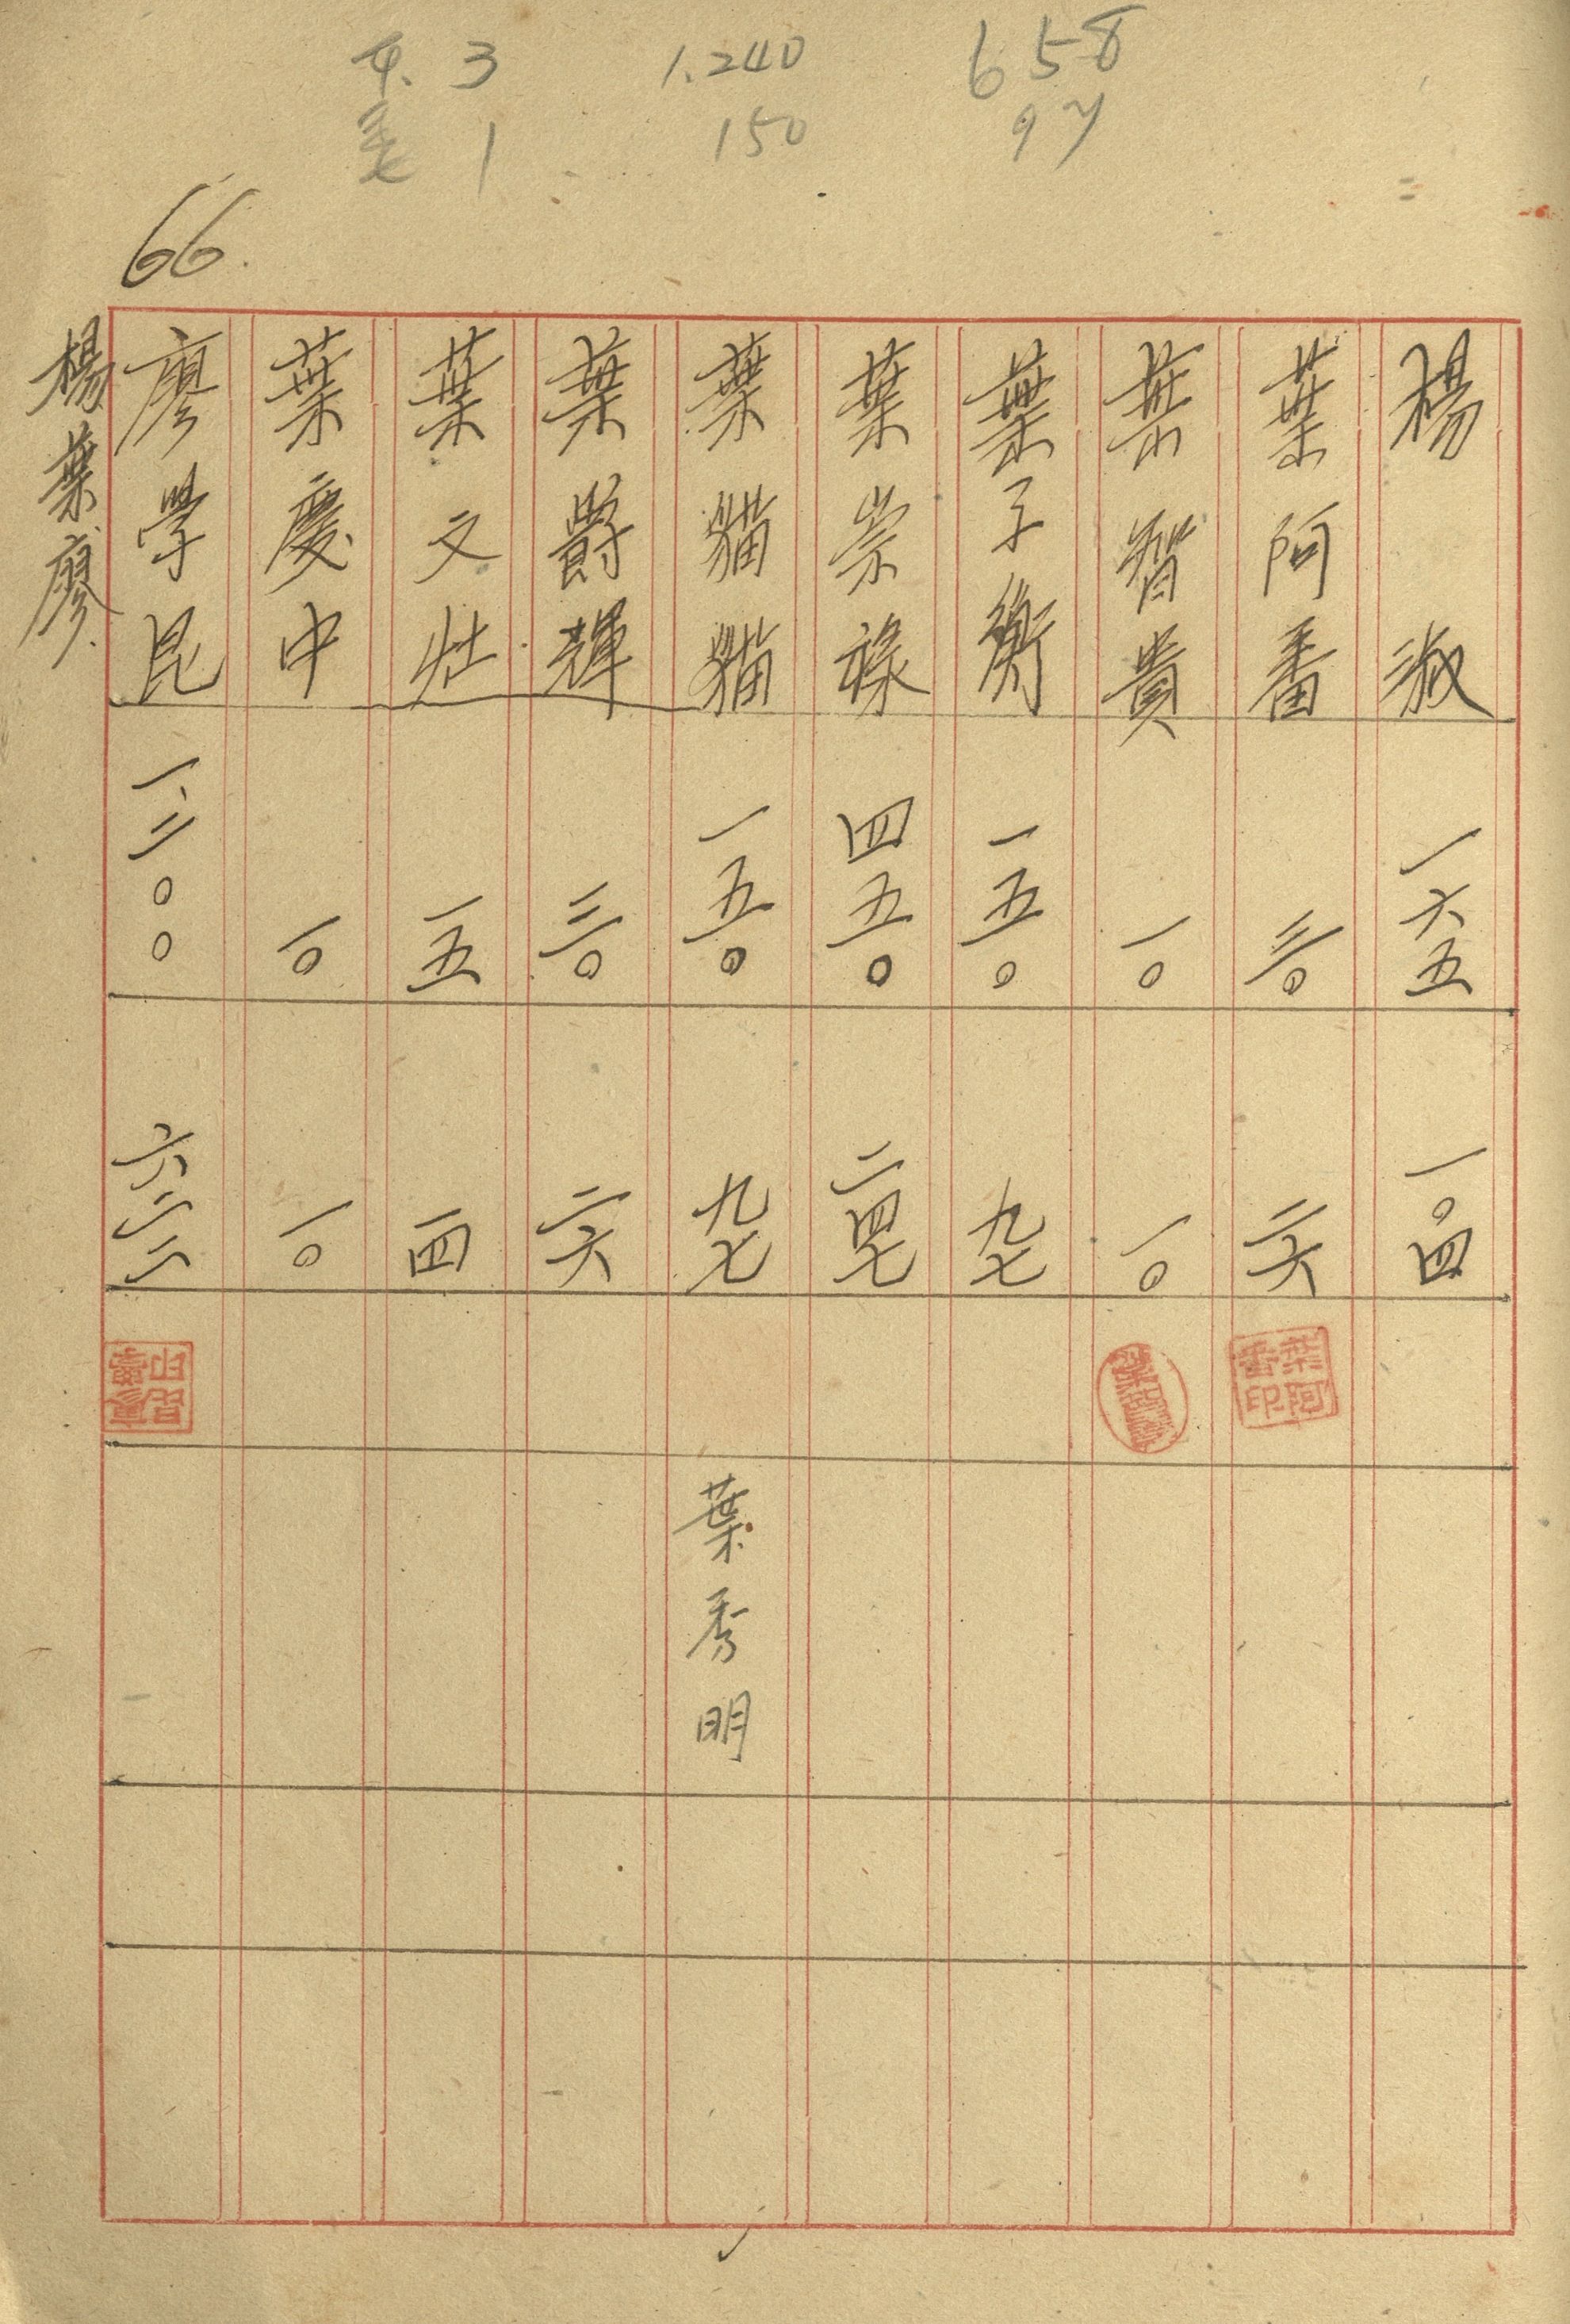 3 1.240 658
1 150 97
66.
楊淑 一六五 一〇四
葉阿番 三〇 二六
葉阿番印
葉智貴 一〇 一〇
葉子衡 一五〇 九七
葉崇祿 四五〇 二四七
葉貓貓 一五〇 九七 葉秀明
葉爵輝 三〇 二六
葉文灶 一五 一四
葉慶中 一〇 一〇
廖學昆 一、二〇〇 六二二
楊葉廖